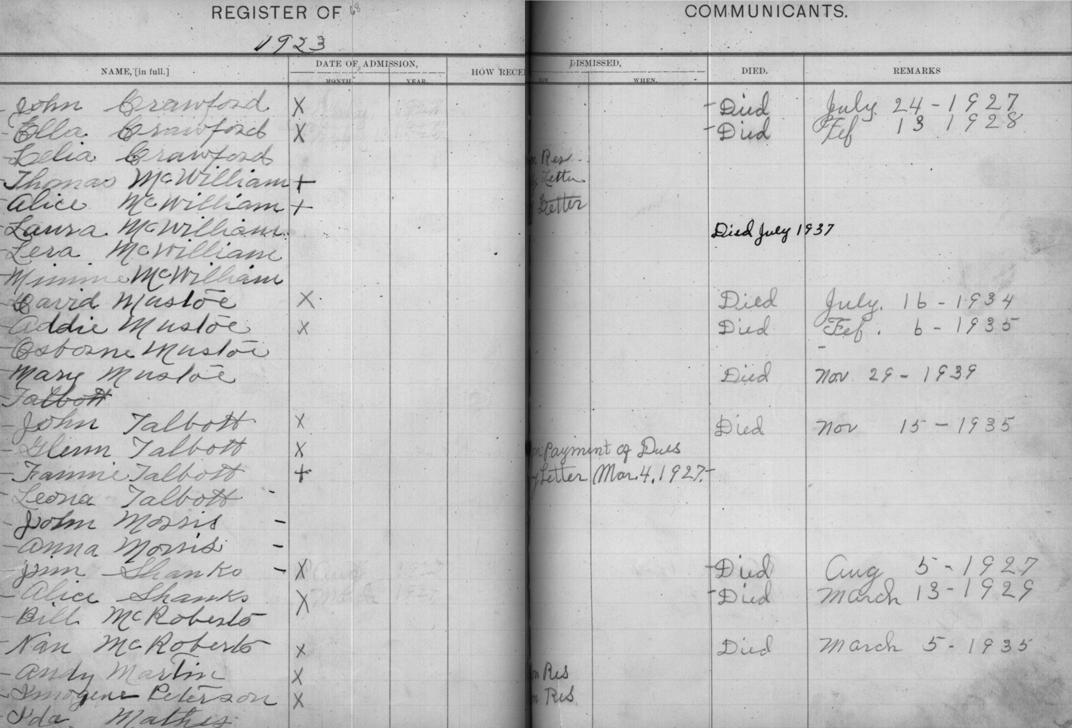 REGISTER OF 68 COMMUNICANTS.
1923
NAME, [in full.] DATE OF ADMISSION, HOW RECE DISMISSED, DIED. REMARKS
MONTH. YEAR. WHEN.
John Crawford X Died July 24-1927
Ella Crawford X Died Fef 13 1928
Lelia Crawford Res.
Thomas McWilliam + Letter
Alice McWilliam + Letter
Laura McWilliam Died July 1937
Lera McWilliam
Minnie McWilliam
David Mustoe X Died July. 16-1934
Addie Mustoe X Died Fef. 6-1935
Osborne Mustoe -
Mary Mustoe Died Nov 29-1939
Talbott
John Talbott X Died Nov 15-1935
Glenn Talbott X Payment of Dues
Fannie Talbott + Letter Mar. 4, 1927-
Leona Talbott -
John Morris -
Anna Morris -
Jim Shanks - X Died Aug 5-1927
Alice Shanks X Died March 13-1929
Bill McRoberts
Nan McRoberts X Died March 5-1935
Andy Martin X Res
Imogene Peterson X Res
Ida Mathes